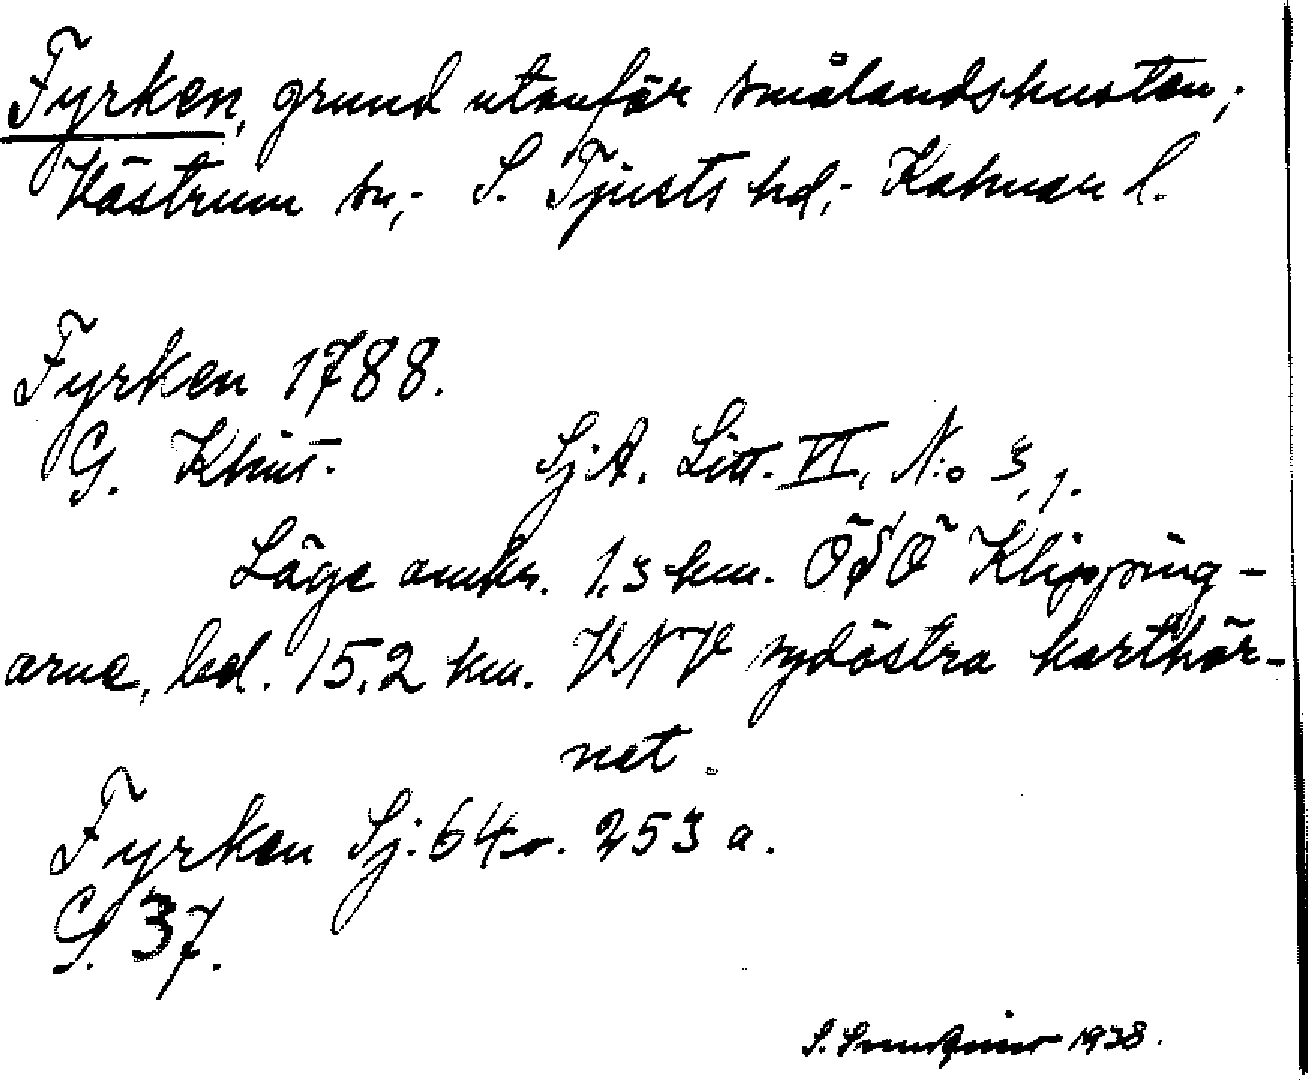 Fyrken, grund utanför smålandskusten;
Västrum sn,; S. Tjusts hd,; Kalmar l.
Fyrken 1788.
G. Klint. Sj.A. Litt. VI, N:o 3, 1.
Läge omkr. 1,3 km. ÖSÖ Klipping-
arne, bel. 15,2 km. VNV sydöstra karthör-
net.
Fyrken Sj: 64 253 a.
S. 37.
S. 1938.